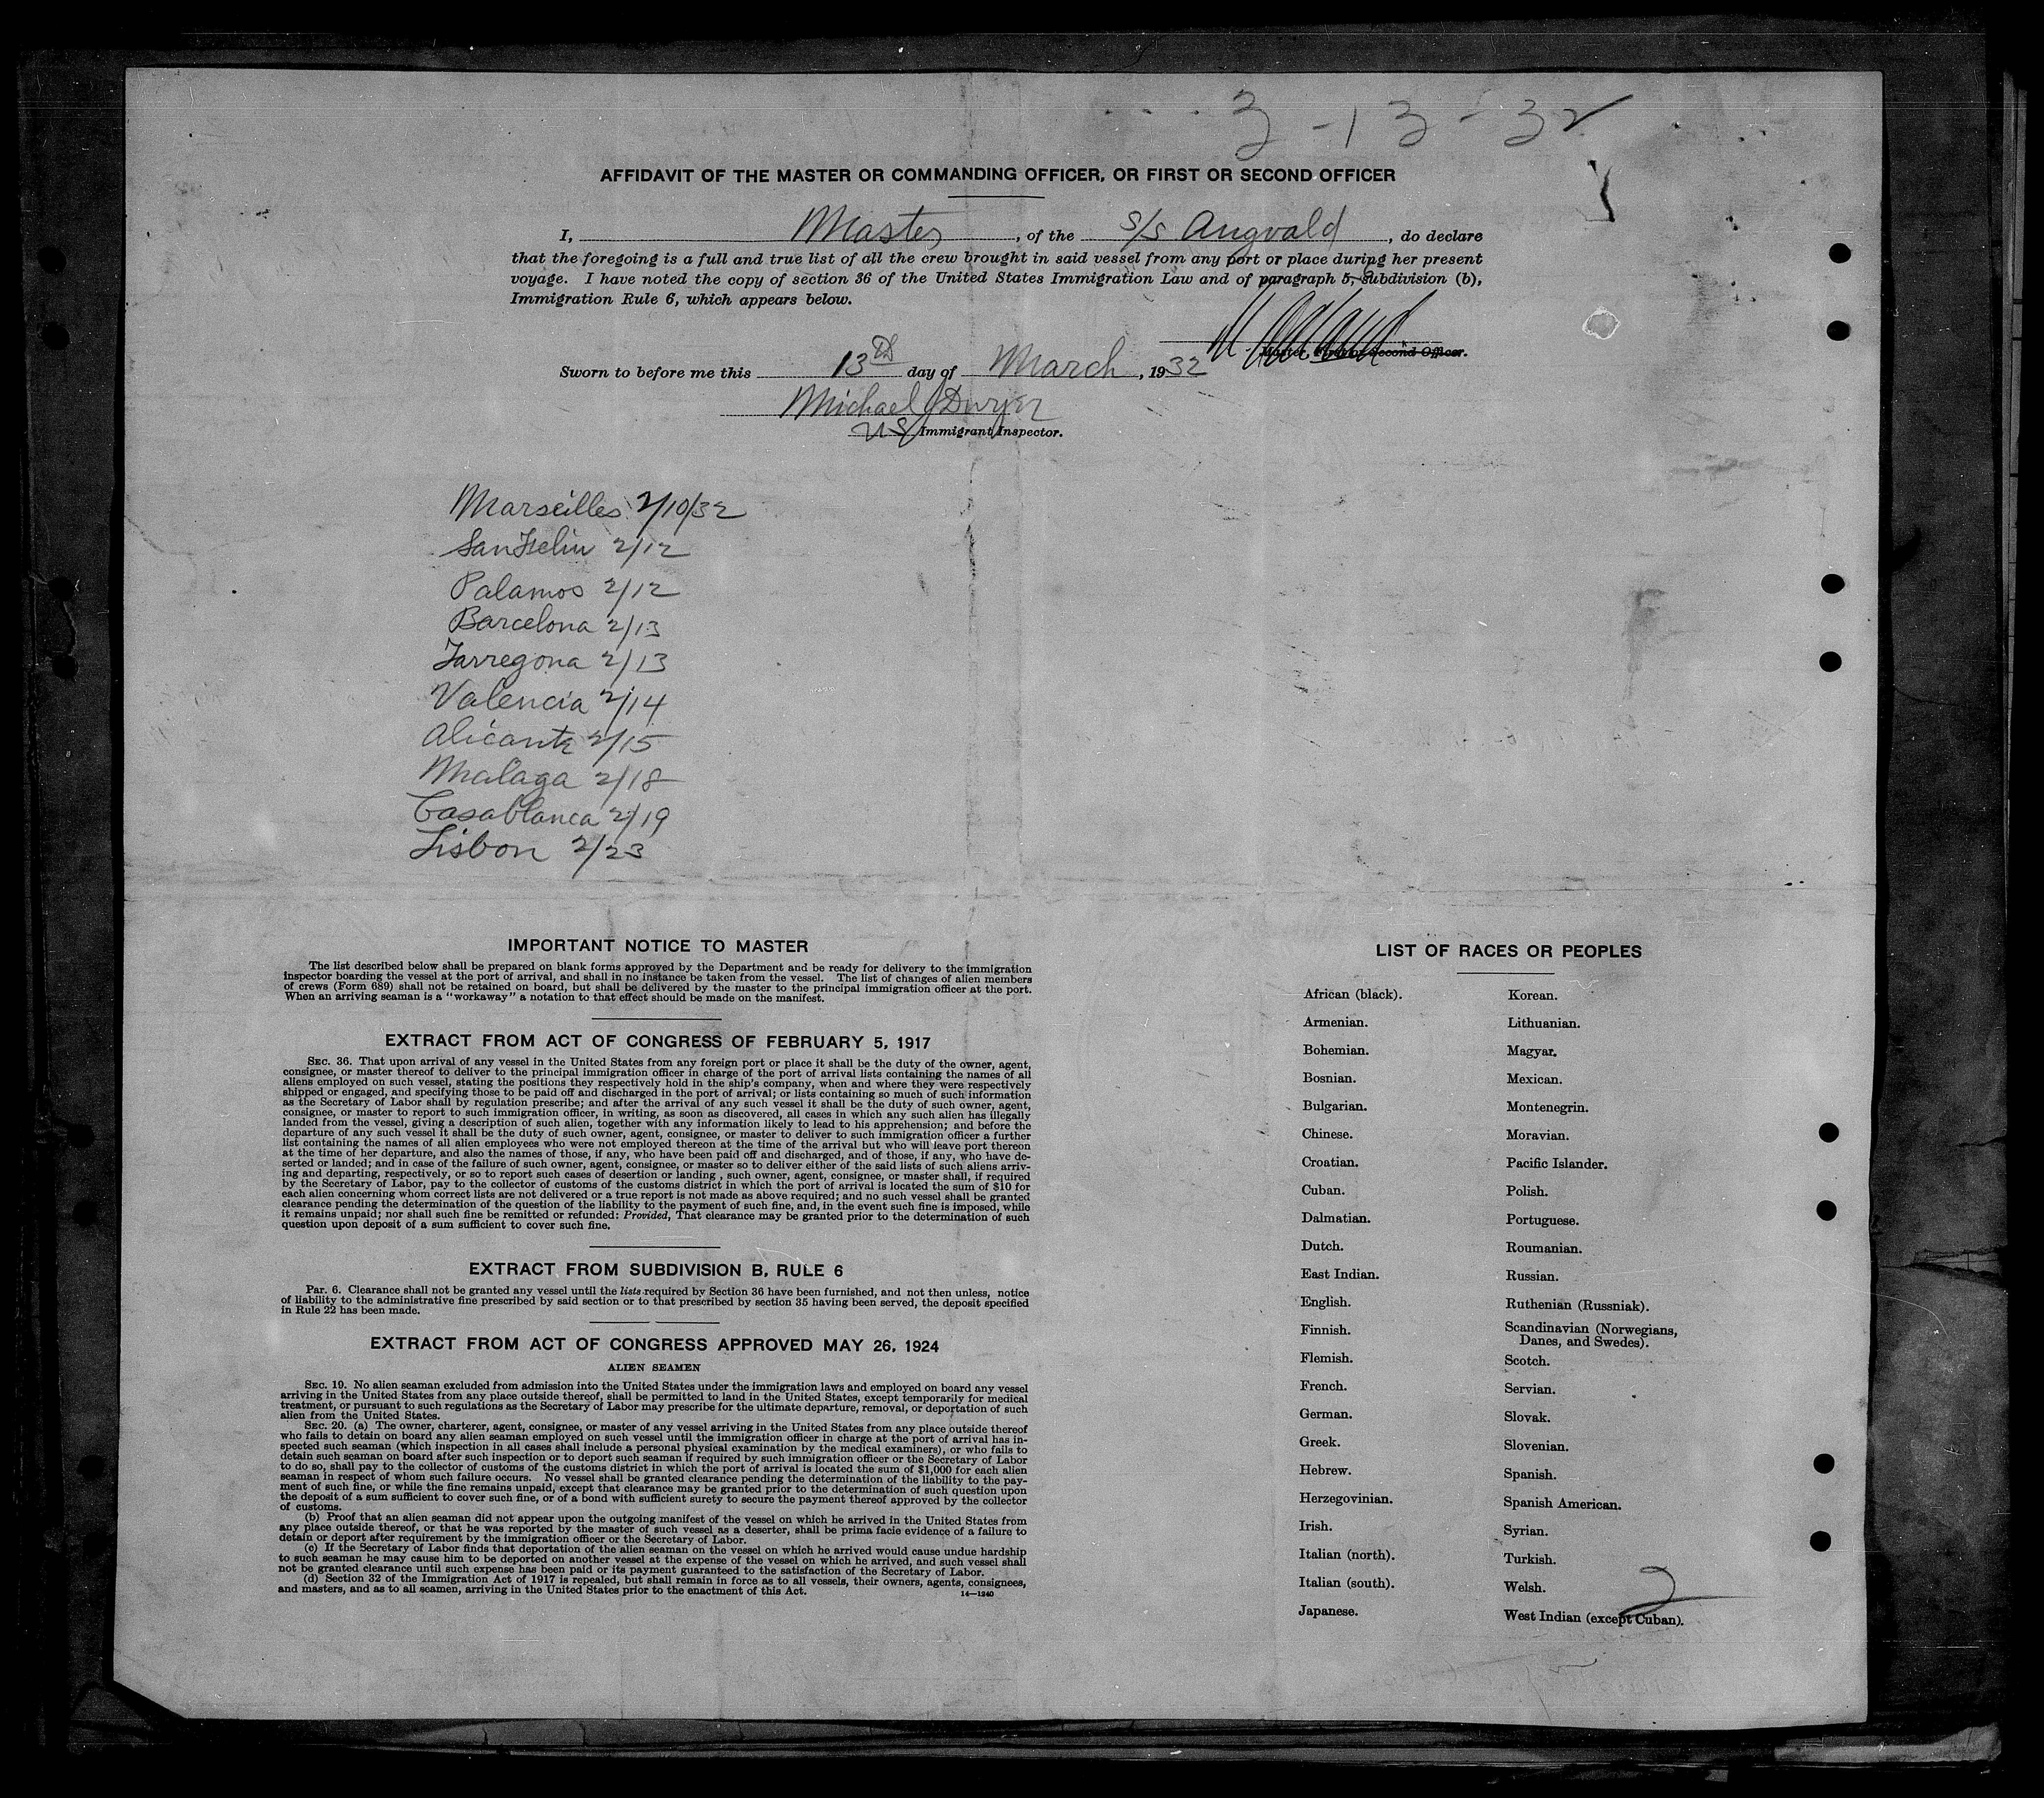 3-13-32
AFFIDAVIT OF THE MASTER OR COMMANDING OFFICER, OR FIRST OR SECOND OFFICER
I, Master, of the S/S Angvald, do declare
that the foregoing is a full and true list of all the crew brought in said vessel from any port or place during her present
voyage. I have noted the copy of section 36 of the United States Immigration Law and of paragraph 5, subdivision (b),
Immigration Rule 6, which appears below.
Master First or Second Officer.
Sworn to before me this 13th day of March, 1932
Michael J Dwyer
US Immigrant Inspector.
Marseilles 2/10/32
San Feliu 2/12
Palamos 2/12
Barcelona 2/13
Tarregona 2/13
Valencia 2/14
Alicante 2/15
Malaga 2/18
Casablanca 2/19
Lisbon 2/23
IMPORTANT NOTICE TO MASTER
The list described below shall be prepared on blank forms approved by the Department and be ready for delivery to the immigration
inspector boarding the vessel at the port of arrival, and shall in no instance be taken from the vessel. The list of changes of alien members
of crews (Form 689) shall not be retained on board, but shall be delivered by the master to the principal immigration officer at the port.
When an arriving seaman is a "workaway" a notation to that effect should be made on the manifest.
EXTRACT FROM ACT OF CONGRESS OF FEBRUARY 5, 1917
SEC. 36. That upon arrival of any vessel in the United States from any foreign port or place it shall be the duty of the owner, agent,
consignee, or master thereof to deliver to the principal immigration officer in charge of the port of arrival lists containing the names of all
aliens employed on such vessel, stating the positions they respectively hold in the ship's company, when and where they were respectively
shipped or engaged, and specifying those to be paid off and discharged in the port of arrival; or lists containing so much of such information
as the Secretary of Labor shall by regulation prescribe; and after the arrival of any such vessel it shall be the duty of such owner, agent,
consignee, or master to report to such immigration officer, in writing, as soon as discovered, all cases in which any such alien has illegally
landed from the vessel, giving a description of such alien, together with any information likely to lead to his apprehension; and before the
departure of any such vessel it shall be the duty of such owner, agent, consignee, or master to deliver to such immigration officer a further
list containing the names of all alien employees who were not employed thereon at the time of the arrival but who will leave port thereon
at the time of her departure, and also the names of those, if any, who have been paid off and discharged, and of those, if any, who have de-
serted or landed; and in case of the failure of such owner, agent, consignee, or master so to deliver either of the said lists of such aliens arriv-
ing and departing, respectively, or so to report such cases of desertion or landing , such owner, agent, consignee, or master shall, if required
by the Secretary of Labor, pay to the collector of customs of the customs district in which the port of arrival is located the sum of $10 for
each alien concerning whom correct lists are not delivered or a true report is not made as above required; and no such vessel shall be granted
clearance pending the determination of the question of the liability to the payment of such fine, and, in the event such fine is imposed, while
it remains unpaid; nor shall such fine be remitted or refunded: Provided, That clearance may be granted prior to the determination of such
question upon deposit of a sum sufficient to cover such fine.
EXTRACT FROM SUBDIVISION B, RULE 6
Par. 6. Clearance shall not be granted any vessel until the lists required by Section 36 have been furnished, and not then unless, notice
of liability to the administrative fine prescribed by said section or to that prescribed by section 35 having been served, the deposit specified
in Rule 22 has been made.
EXTRACT FROM ACT OF CONGRESS APPROVED MAY 26, 1924
ALIEN SEAMEN
SEC. 19. No alien seaman excluded from admission into the United States under the immigration laws and employed on board any vessel
arriving in the United States from any place outside thereof, shall be permitted to land in the United States, except temporarily for medical
treatment, or pursuant to such regulations as the Secretary of Labor may prescribe for the ultimate departure, removal, or deportation of such
alien from the United States.
SEC. 20. (a) The owner, charterer, agent, consignee, or master of any vessel arriving in the United States from any place outside thereof
who fails to detain on board any alien seaman employed on such vessel until the immigration officer in charge at the port of arrival has in-
spected such seaman (which inspection in all cases shall include a personal physical examination by the medical examiners), or who fails to
detain such seaman on board after such inspection or to deport such seaman if required by such immigration officer or the Secretary of Labor
to do so, shall pay to the collector of customs of the customs district in which the port of arrival is located the sum of $1,000 for each alien
seaman in respect of whom such failure occurs. No vessel shall be granted clearance pending the determination of the liability to the pay-
ment of such fine, or while the fine remains unpaid, except that clearance may be granted prior to the determination of such question upon
the deposit of a sum sufficient to cover such fine, or of a bond with sufficient surety to secure the payment thereof approved by the collector
of customs.
(b) Proof that an alien seaman did not appear upon the outgoing manifest of the vessel on which he arrived in the United States from
any place outside thereof, or that he was reported by the master of such vessel as a deserter, shall be prima facie evidence of a failure to
detain or deport after requirement by the immigration officer or the Secretary of Labor.
(c) If the Secretary of Labor finds that deportation of the alien seaman on the vessel on which he arrived would cause undue hardship
to such seaman he may cause him to be deported on another vessel at the expense of the vessel on which he arrived, and such vessel shall
not be granted clearance until such expense has been paid or its payment guaranteed to the satisfaction of the Secretary of Labor.
(d) Section 32 of the Immigration Act of 1917 is repealed, but shall remain in force as to all vessels, their owners, agents, consignees,
and masters, and as to all seamen, arriving in the United States prior to the enactment of this Act.
14—1240
LIST OF RACES OR PEOPLES
African (black).
Armenian.
Bohemian.
Bosnian.
Bulgarian.
Chinese.
Croatian.
Cuban.
Dalmatian.
Dutch.
East Indian.
English.
Finnish.
Flemish.
French.
German.
Greek.
Hebrew.
Herzegovinian.
Irish.
Italian (north).
Italian (south).
Japanese.
Korean.
Lithuanian.
Magyar.
Mexican.
Montenegrin.
Moravian.
Pacific Islander.
Polish.
Portuguese.
Roumanian.
Russian.
Ruthenian (Russniak).
Scandinavian (Norwegians,
Danes, and Swedes).
Scotch.
Servian.
Slovak.
Slovenian.
Spanish.
Spanish American.
Syrian.
Turkish.
Welsh.
West Indian (except Cuban).
2